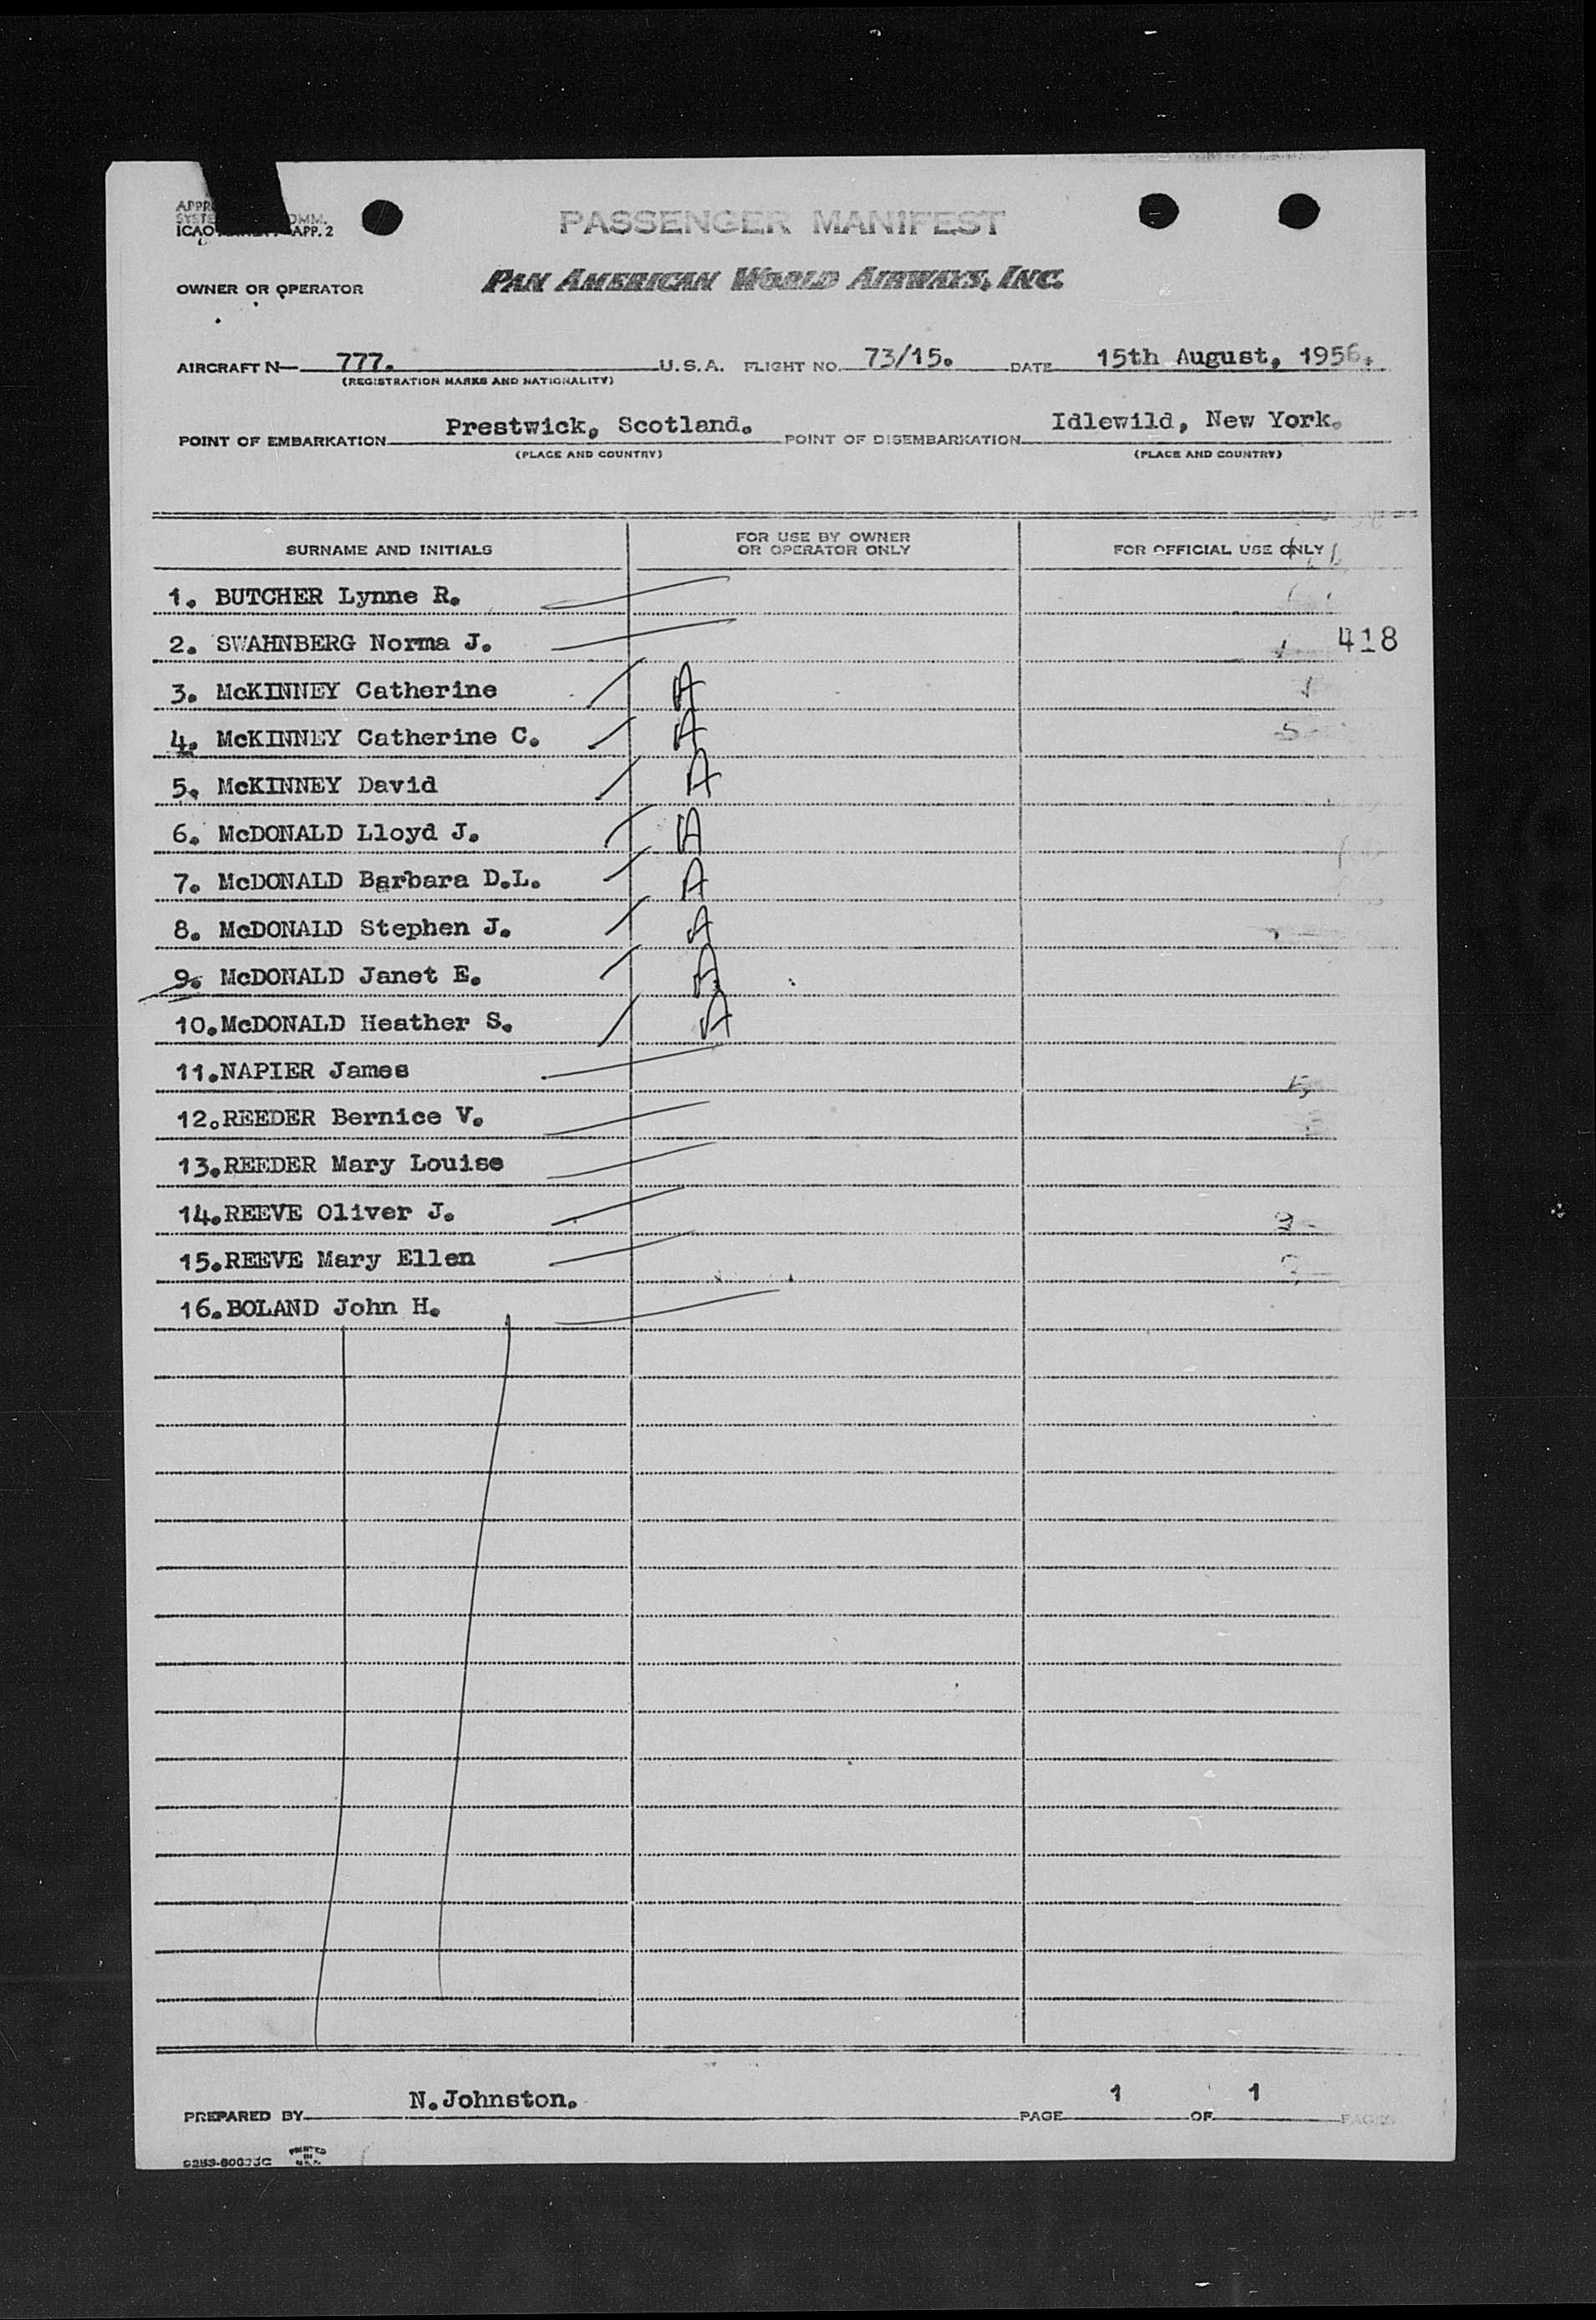 ICAO APP. 2
PASSENGER MANIFEST
OWNER OR OPERATOR PAN AMERICAN WORLD AIRWAYS, INC.
AIRCRAFT N— 777. U.S.A. FLIGHT NO. 73/15. DATE 15th August, 1956.
(REGISTRATION MARKS AND NATIONALITY)
POINT OF EMBARKATION Prestwick, Scotland. POINT OF DISEMBARKATION Idlewild, New York.
(PLACE AND COUNTRY) (PLACE AND COUNTRY)
SURNAME AND INITIALS FOR USE BY OWNER OR OPERATOR ONLY FOR OFFICIAL USE ONLY
1. BUTCHER Lynne R.
2. SWAHNBERG Norma J. 418
3. McKINNEY Catherine A
4. McKINNEY Catherine C. A
5. McKINNEY David A
6. McDONALD Lloyd J. A
7. McDONALD Barbara D.L. A
8. McDONALD Stephen J. A
9. McDONALD Janet E. A
10. McDONALD Heather S. A
11. NAPIER James
12. REEDER Bernice V.
13. REEDER Mary Louise
14. REEVE Oliver J.
15. REEVE Mary Ellen
16. BOLAND John H.
PREPARED BY N. Johnston. PAGE 1 OF 1 PAGES
PRINTED IN U.S.A.